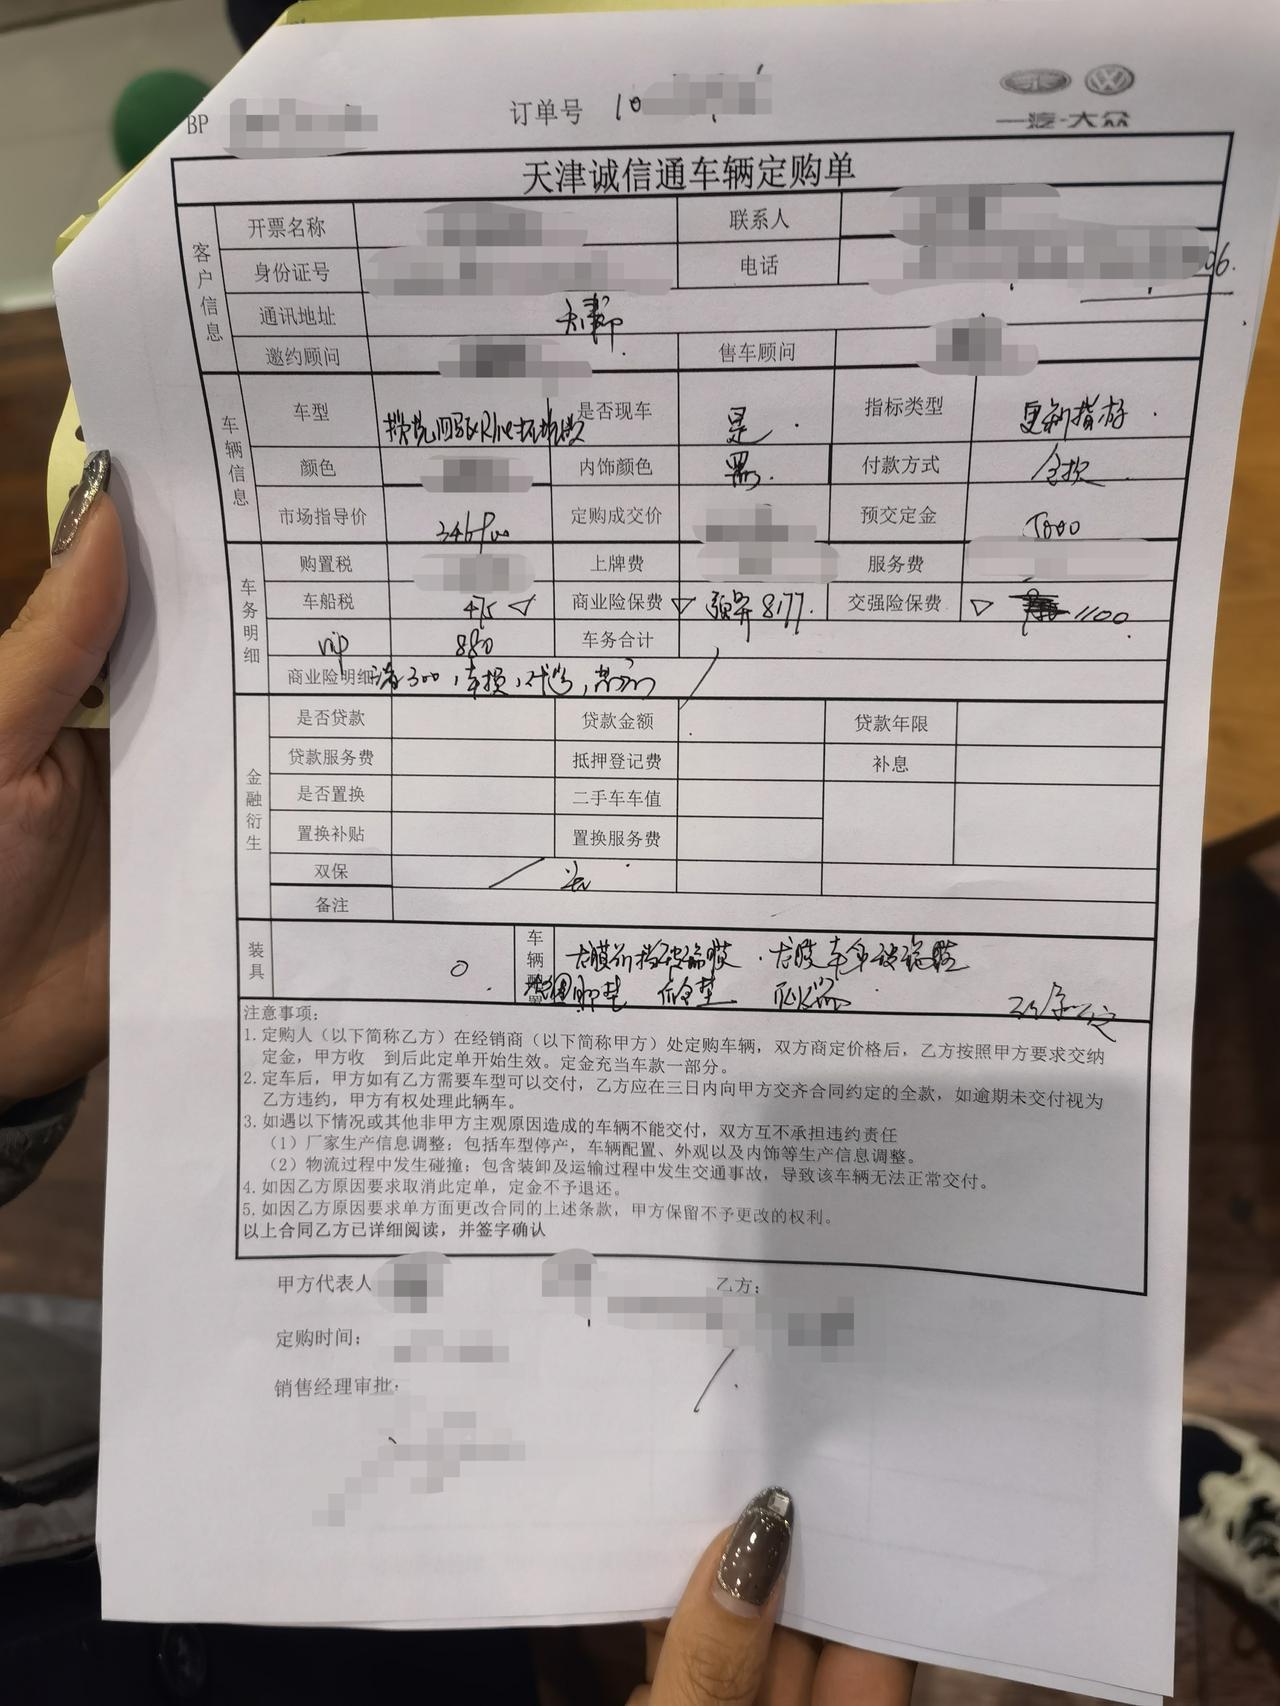 BP 订单号 10 一汽-大众
天津诚信通车辆定购单
客户信息
开票名称 联系人
身份证号 电话 06.
通讯地址 天津
邀约顾问 售车顾问
车辆信息
车型 是否现车 是 指标类型 更新指标
颜色 内饰颜色 黑 付款方式 全款
市场指导价 346900 定购成交价 预交定金 5000
车务明细
购置税 上牌费 服务费
车船税 475 商业险保费 预算8177. 交强险保费 1100
vip 880 车务合计
商业险明细 300,车损,
金融衍生
是否贷款 贷款金额 贷款年限
贷款服务费 抵押登记费 补息
是否置换 二手车车值
置换补贴 置换服务费
双保
备注
装具 0 车辆 膜前挡玻璃膜
脚垫
注意事项:
1. 定购人（以下简称乙方）在经销商（以下简称甲方）处定购车辆，双方商定价格后，乙方按照甲方要求交纳
定金，甲方收 到后此定单开始生效。定金充当车款一部分。
2. 定车后，甲方如有乙方需要车型可以交付，乙方应在三日内向甲方交齐合同约定的全款，如逾期未交付视为
乙方违约，甲方有权处理此辆车。
3. 如遇以下情况或其他非甲方主观原因造成的车辆不能交付，双方互不承担违约责任
（1）厂家生产信息调整；包括车型停产，车辆配置、外观以及内饰等生产信息调整。
（2）物流过程中发生碰撞；包含装卸及运输过程中发生交通事故，导致该车辆无法正常交付。
4. 如因乙方原因要求取消此定单，定金不予退还。
5. 如因乙方原因要求单方面更改合同的上述条款，甲方保留不予更改的权利。
以上合同乙方已详细阅读，并签字确认
甲方代表人 乙方:
定购时间:
销售经理审批: